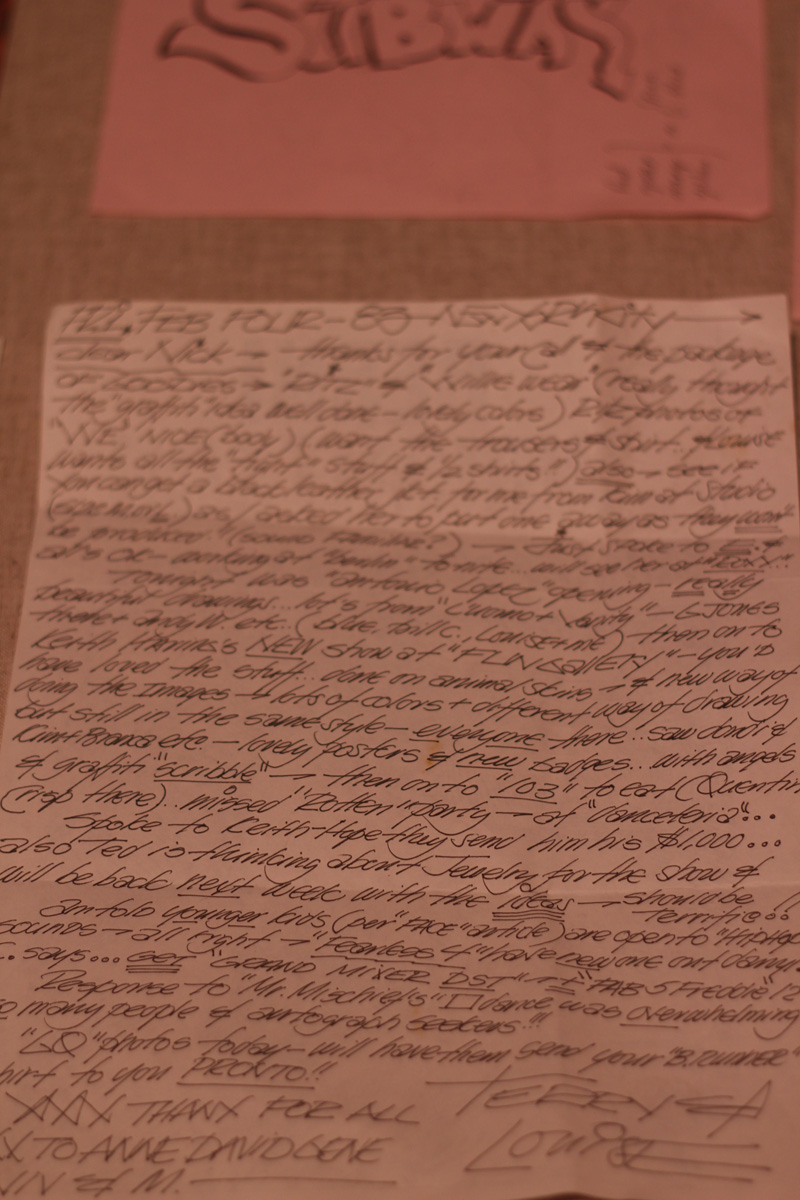 SUBWAY
HI, FEB FOUR - 83 - NEW YORK CITY
dear Nick → thanks for your call & the package
OF GOODIES → "RITZ" & "WILLIE wear" (really thought
the "graffiti" idea well done - lovely colors) photos OF
"WE" NICE (body) (want the trousers & shirt.. & Louise
wants all the "tight" stuff & ½ shirts") also → see if
you can get a black leather jkt. for me from Kim at Studio
as I asked her to put one away as they won't
be produced. (sound FAMILIAR?) → Just spoke to &
al's OK - working at "Berlin" to nite... will see her at "ROXY"..
Tonight was "antonio Lopez" opening - really
beautiful drawings... lot's from "Cuomo + Vanity" - G. JONES
there + andy W. etc.. (blue, bill c., Louise + me) - then on to
Keith HARING's NEW show at "FUN GALLERY" - you'd
have loved the stuff... done on animal skins → & new way of
doing the Images → lots of colors + different way of drawing
but still in the same style - everyone there.. saw dondi &
Kim + Branca etc. - lovely posters & new badges... with angels
& graffiti "scribble" → then on to "103" to eat (Quentin
Crisp there).. missed "Rotten" party → at "danceteria"...
Spoke to Keith - Hope they send him his $1,000...
also Ted is thinking about Jewelry for the show &
will be back next week with the Ideas → should be
Terrific.. !!
am told younger kids (per "FACE" article) are open to "HipHop
sounds → all right → "Fearless 4" have new one out
says... GET "GRAND MIXER DST" + "FAB 5 Freddie" 12
Response to "Mr. Mischief's" dance was overwhelming
so many people & autograph seekers!!!
"GQ" photos today - will have them send your "B. RUNNER"
shirt to you PRONTO!!
XXX THANX FOR ALL TERRY &
X TO ANNE DAVID GENE Louise
VIV & M.